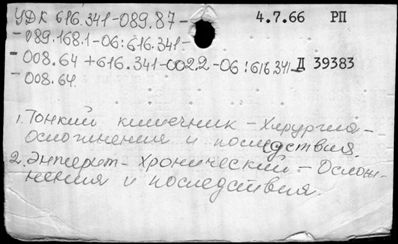 УДК 616.341-089.87-
4.7.66 РП
-089.168.1-06:616.341-
-008.64+616.341-002.2-06:616.341-
Д 39383
-008.64.
1. Тонкий кишечник - Хирургия -
Осложнения и последствия.
2. Энтерит - хронический. - Ослож-
нения и последствия.